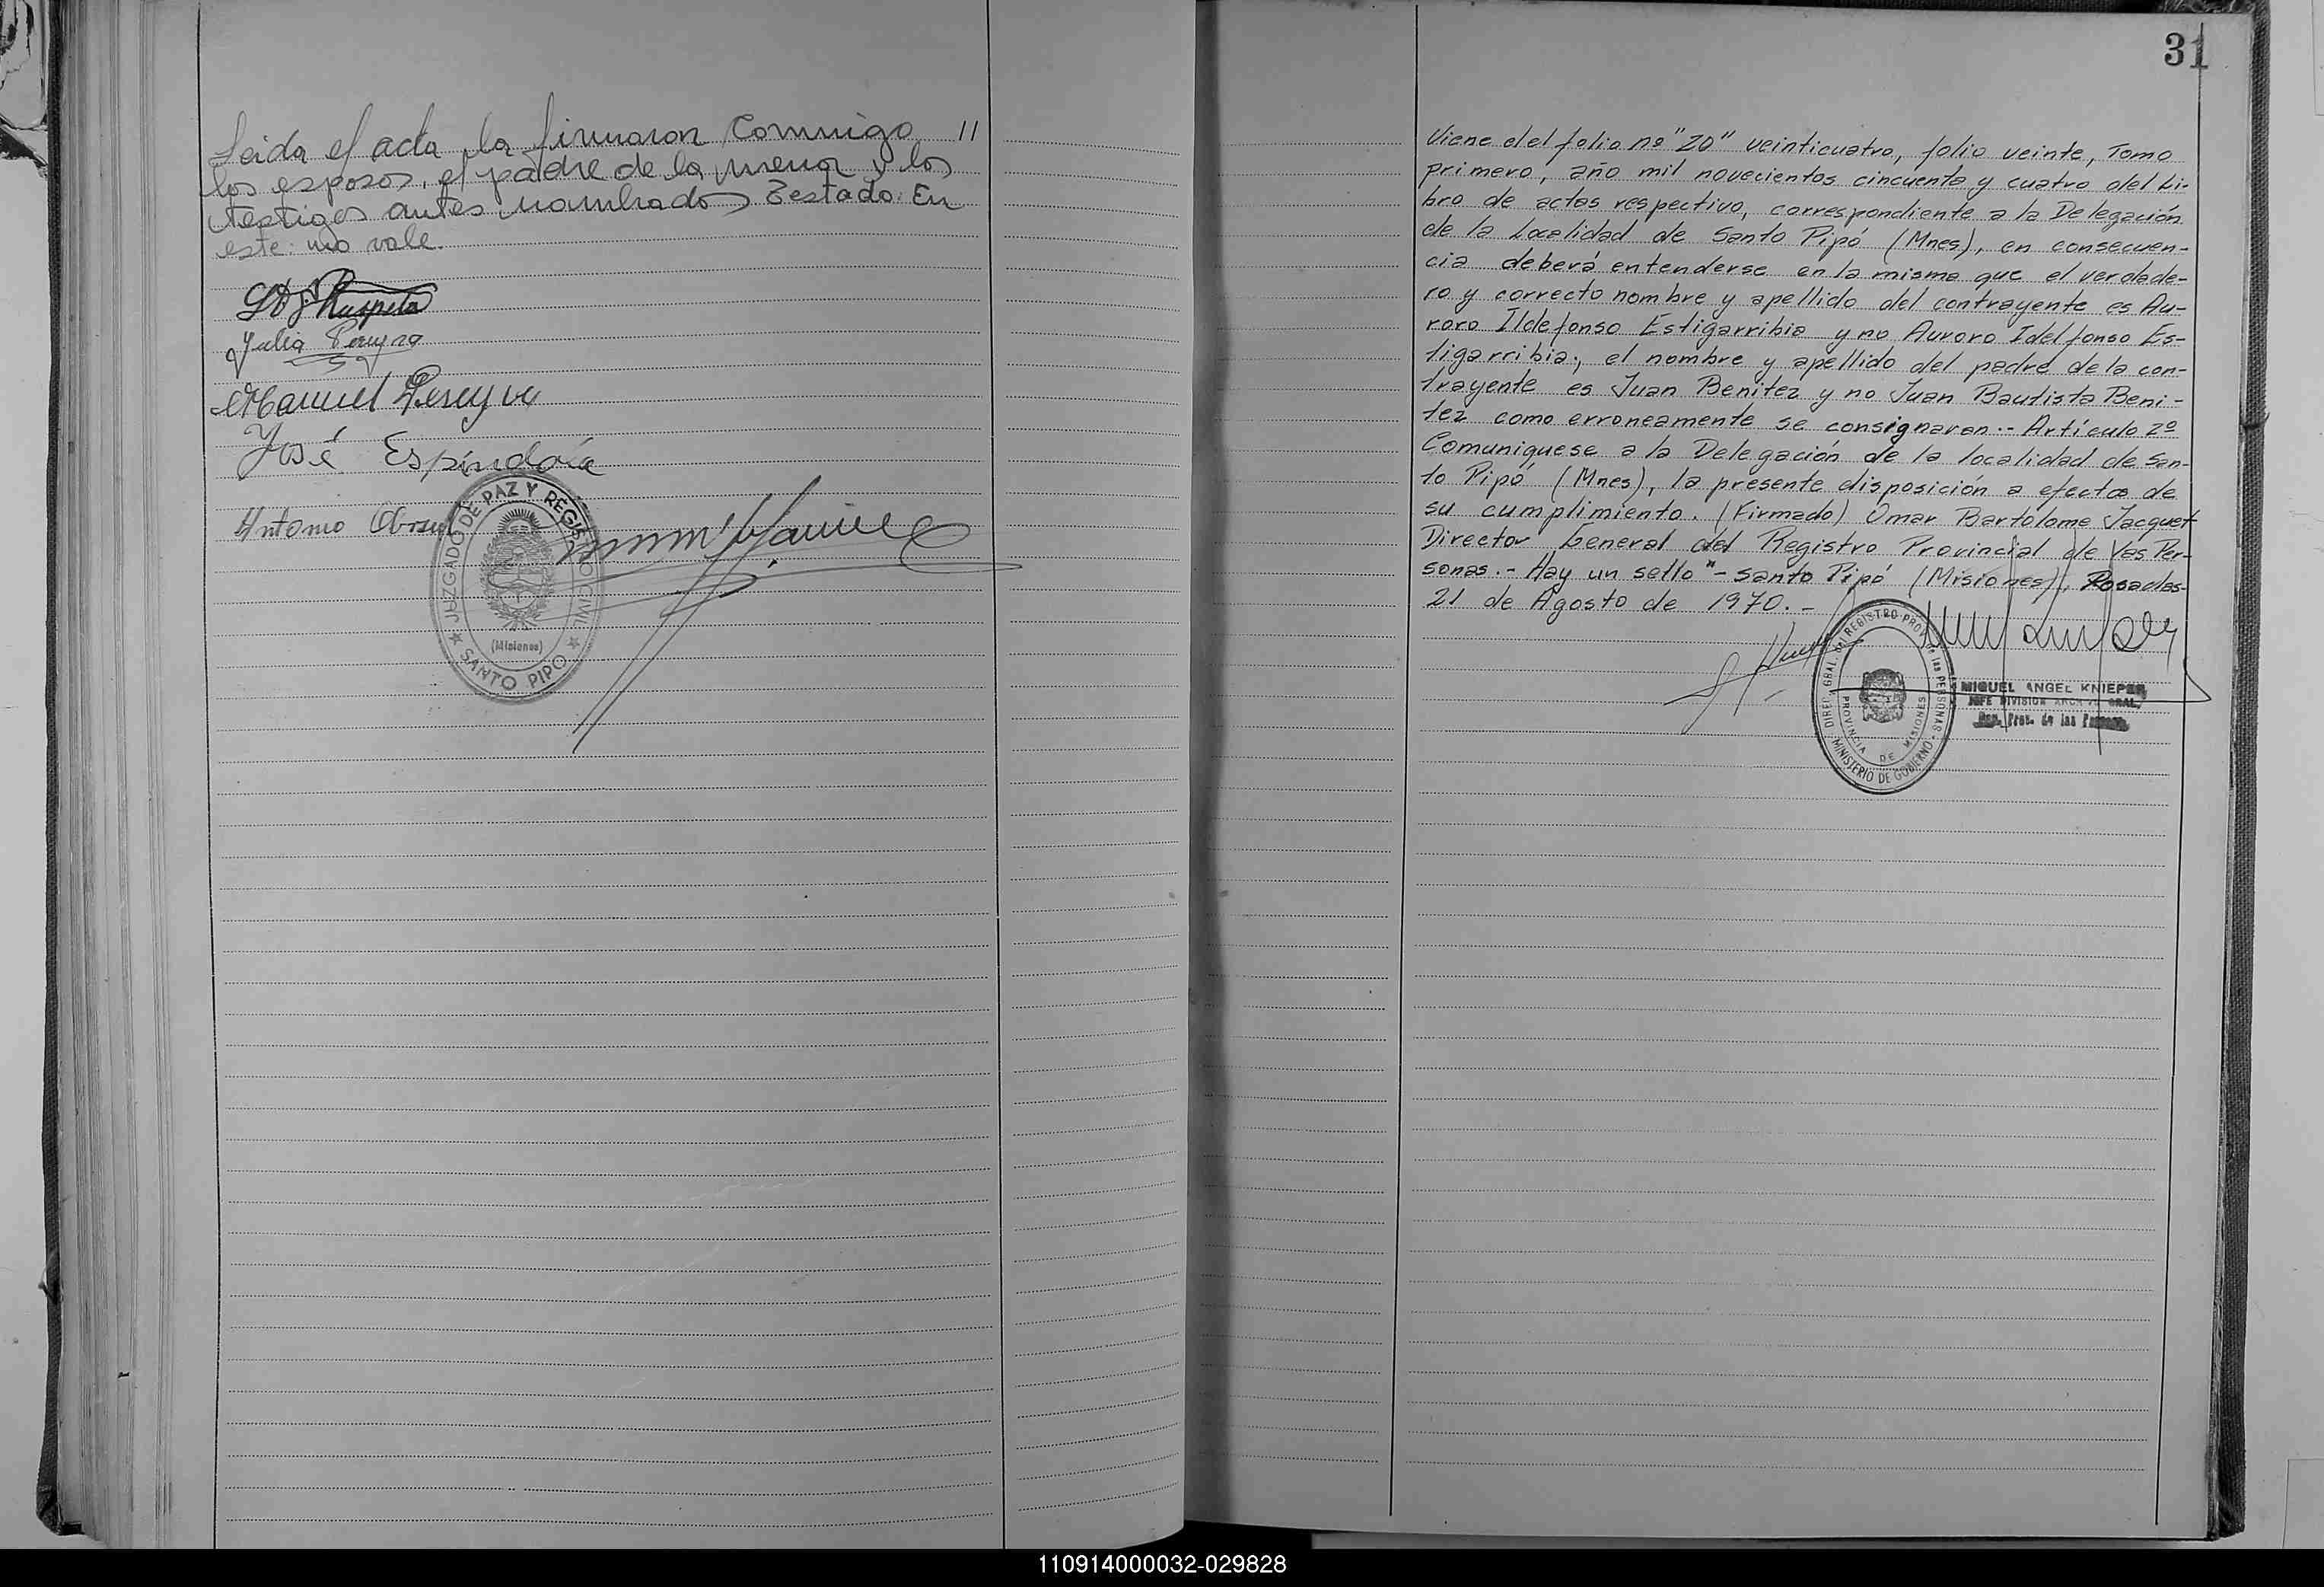 Leida el acta la firmaron conmigo "
los esposos, el padre de la menor y los
testigos antes nombrados Testado: En
este: no vale.
Julia Pereyra
Manuel Pereyra
José Espíndola
Antonio
JUZGADO DE PAZ Y REGISTRO CIVIL
(Misiones)
★ SANTO PIPO ★
31
Viene del folio nº "20" veinticuatro, folio veinte, Tomo
primero, año mil novecientos cincuenta y cuatro del Li-
bro de actas respectivo, correspondiente a la Delegación
de la Localidad de Santo Pipó (Mnes), en consecuen-
cia deberá entenderse en la misma que el verdade-
ro y correcto nombre y apellido del contrayente es Au-
roro Ildefonso Estigarribia y no Auroro Idelfonso Es-
tigarribia; el nombre y apellido del padre de la con-
trayente es Juan Benitez y no Juan Bautista Beni-
tez como erroneamente se consignaran.- Artículo 2º
Comuniquese a la Delegación de la localidad de San-
to Pipó (Mnes), la presente disposición a efectos de
su cumplimiento. (Firmado) Omar Bartolome Jacquet
Director General del Registro Provincial de las Per-
sonas.- Hay un sello "- Santo Pipó (Misiones), Posadas
21 de Agosto de 1970.-
DIREC. GRAL. del REGISTRO PROV. de las PERSONAS
PROVINCIA DE MISIONES
MINISTERIO DE GOBIERNO
MIGUEL ANGEL KNIEPER
JEFE DIVISION ARCH VO GRAL.
Reg. Prov. de las Personas
110914000032-029828